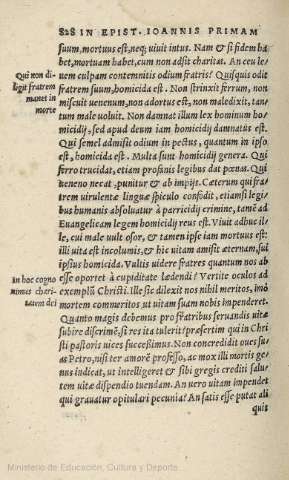 828 IN EPIST. IOANNIS PRIMAM
suum, mortuus est, neq; uiuit intus. Nam & si fidem ha
bet, mortuam habet, cum non adsit charitas. An ceu le
Qui non di
ligit fratrem
manet in
morte
uem culpam contemnitis odium fratris? Quisquis odit
fratrem suum, homicida est. Non strinxit ferrum, non
miscuit uenenum, non adortus est, non maledixit, tan
tum male uoluit. Non damnat illum lex hominum ho
micidij, sed apud deum iam homicidij damnatus est.
Qui semel admisit odium in pectus, quantum in ipso
est, homicida est. Multa sunt homicidij genera. Qui
ferro trucidat, etiam profanis legibus dat pœnas. Qui
ueneno necat, punitur & ab impijs. Cæterum qui fra
trem uirulentæ linguæ spiculo confodit, etiamsi legi
bus humanis absoluatur à parricidij crimine, tamē ad
Euangelicam legem homicidij reus est. Viuit adhuc il
le, cui male uult osor, & tamen ipse iam mortuus est:
illi uita est incolumis, & hic uitam amisit æternam, sui
ipsius homicida. Vultis uidere fratres quantum nos ab
In hoc cogno
uimus chari
tatem dei
esse oportet à cupiditate lædendi? Vertite oculos ad
exemplū Christi. Ille sic dilexit nos nihil meritos, imò
mortem commeritos ut uitam suam nobis impenderet.
Quanto magis debemus pro fratribus seruandis uitæ
subire discrimē, si res ita tulerit? præsertim qui in Chri
sti pastoris uices successimus. Non concredidit oues su-
as Petro, nisi ter amorē professo, ac mox illi mortis ge-
nus indicat, ut intelligeret & sibi gregis crediti salu-
tem uitæ dispendio tuendam. An uero uitam impendet
qui grauatur opitulari pecunia? An satis esse putat ali
quit
Ministerio de Educación, Cultura y Deporte